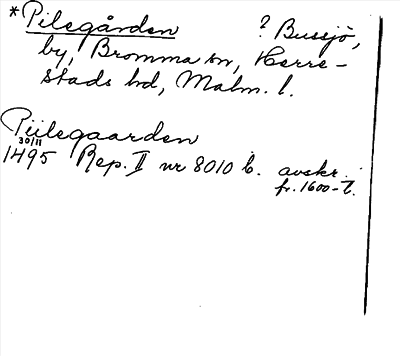 *Pilegården ? Bussjö,
by, Bromma sn, Herre-
stads hd, Malm. l.
Piilegaarden
30/11
1495 Rep. II nr 8010 b. avskr.
fr. 1600-t.